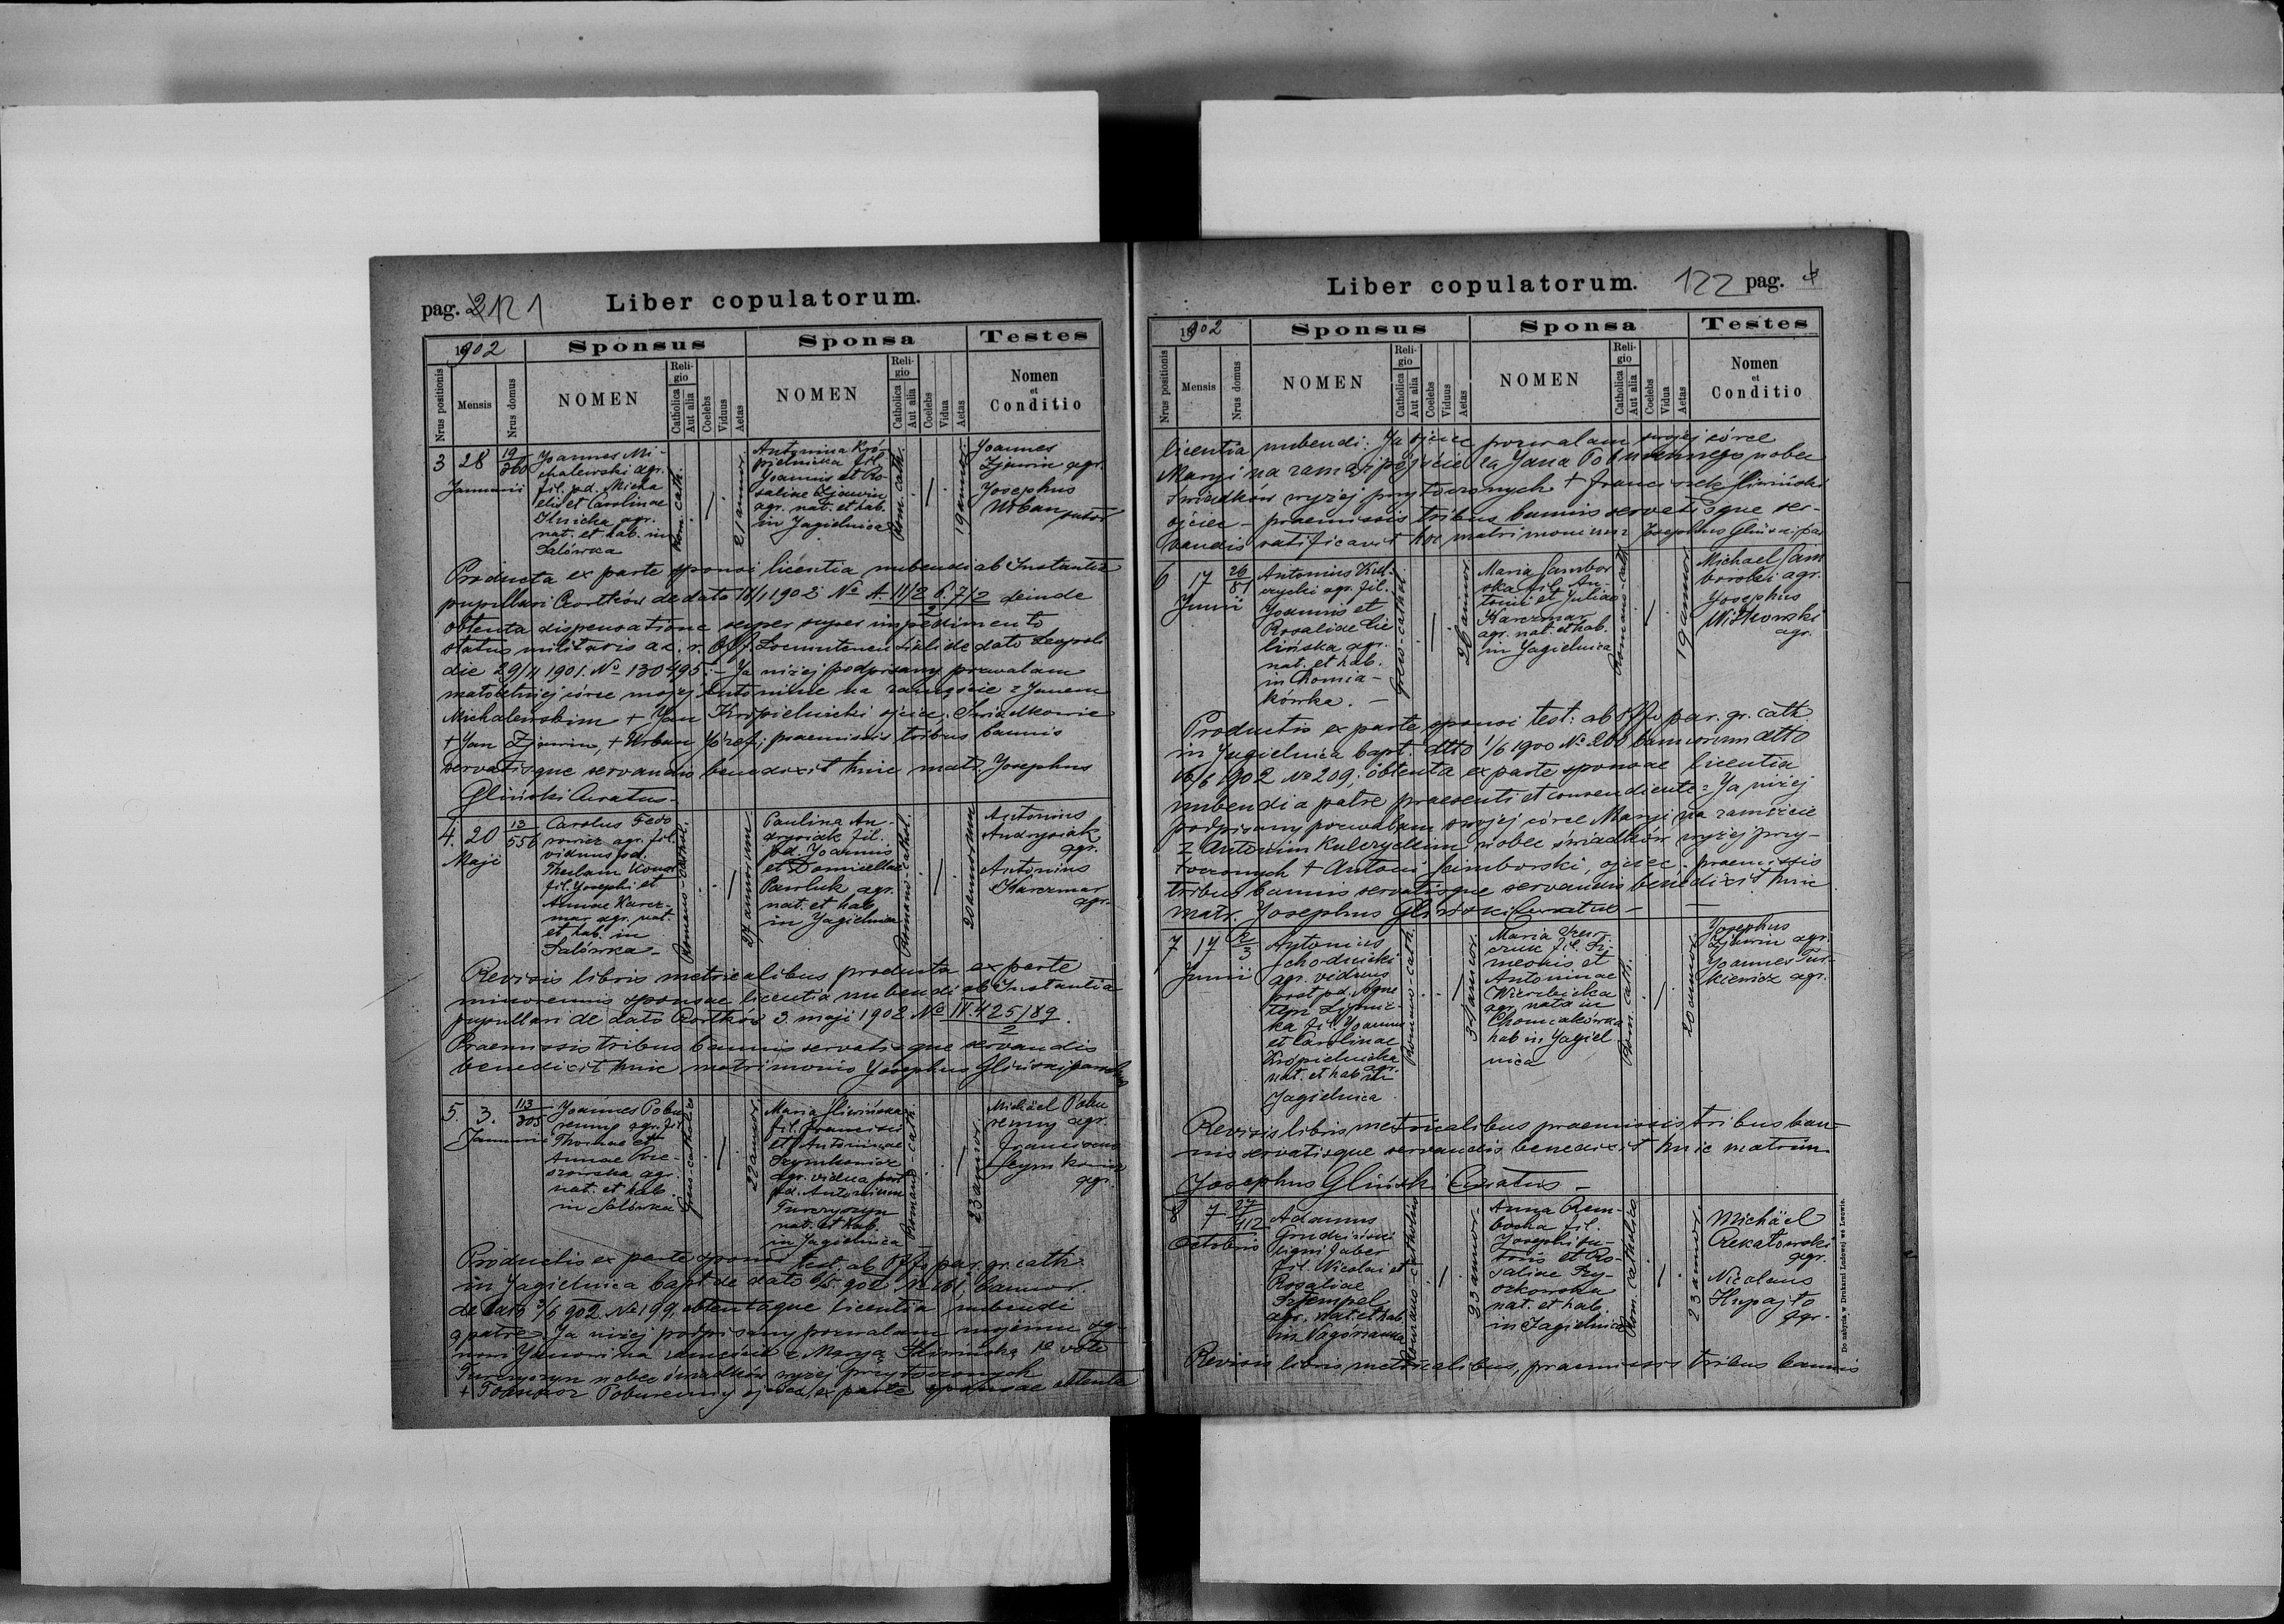 pag. 121
Liber copulatorum.
1902
Sponsus
Sponsa
Testes
Nrus positionis
Mensis
Nrus domus
NOMEN
Religio
Catholica
Aut alia
Coelebs
Viduus
Aetas
NOMEN
Religio
Catholica
Aut alia
Coelebs
Vidua
Aetas
Nomen
et
Conditio
3
28
Januarii
19
360
Joannes Mi-
chalewski agr.
fil. pd. Micha
elis et Carolinae
agr.
nat. et hab. in
Salówka
Rom. cath.
21 annor.
Antonina Kró-
pielnicka fil.
Joannis et Ro-
saliae Zjawin
agr. nat. et hab.
in Jagielnica
Rom. cath.
19 annor.
Joannes
Zjawin agr.
Josephus
Urban sutor
Producta ex parte sponsi licentia nubendi ab Instantia
pupillari Czortków de dato 18/1 1902 No A 11/2 6.7/2 deinde
2
obtenta dispensatione super super impedimento
status militaris a c. r. Locumtenentiali de dato Leopoli
die 29/11 1901. No 130495. – Ja niżej podpisany pozwalam
małoletniej córce mojej Antoninie na zamęście z Janem
Michalewskim + Jan Krópielnicki ojciec; Świadkowie
+ Jan Zjawin, + Urban Józef; praemissis tribus bannis
servatisque servandis benedixit huic mat. Josephus
Gliński Curatus –
4.
20
Maji
13
556
Carolus Fedo
rowicz agr. fil.
viduus pd.
Theclam
fil. Josephi et
Annae Karcz-
mar agr. nat.
et hab. in
Salówka –
Romano-cathol.
27 annorum
Paulina An-
drysiak fil.
pd. Joannis
et Domicellae
Pawluk agr.
nat. et hab.
in Jagielnica
Romano-cathol.
20 annorum
Antonius
Andrysiak
agr.
Antonius
Karczmar
agr.
Revisis libris metricalibus, producta ex parte
minorennis sponsae licentia nubendi ab Instantia
pupillari de dato Czortków 3. maji 1902 No IV. 425/89
2
Praemissis tribus bannis servatisque servandis
benedixit huic matrimonio Josephus Gliński parochus
5.
3.
113
305
Joannes Pobu
renny agr. fil.
Thomae et
Annae
agr.
nat. et hab.
in Salówka
22 annor.
Maria Śliwińska
fil. Francisci
et Antoninae
Szymkowicz
agr. vidua post
pd. Antonium
Turczyszyn
nat. et hab.
in Jagielnica
Romano-cath.
23 annor.
Michäel Pobu
renny agr.
Franciscus
Szymkowicz
agr.
Productis ex parte sponsi test. ab Offo par. gr. cath.
in Jagielnica bapt. de dato 902 bannor.
de dato 902 No 199, obtentaque licentia nubendi
a patre: Ja niżej podpisany pozwalam mojemu sy-
nowi Janowi na zamęście z Maryą Śliwińską 1o voto
Turczyszyn wobec świadków wyżej przytoczonych
+ Tomasz Poburenny ojciec, ex parte sponsae obtenta
Liber copulatorum.
122 pag. 4
1902
Sponsus
Sponsa
Testes
Nrus positionis
Mensis
Nrus domus
NOMEN
Religio
Catholica
Aut alia
Coelebs
Viduus
Aetas
NOMEN
Religio
Catholica
Aut alia
Coelebs
Vidua
Aetas
Nomen
et
Conditio
licentia nubendi: Ja ojciec pozwalam swojej córce
Maryi na zamąż pójście za Jana Poburennego wobec
świadków wyżej przytoczonych + Franciszek Śliwiński
ojciec – praemissis tribus bannis servatisque ser-
vandis ratificavit hoc matrimonium Josephus Gliński par
6
17
Junii
26
81
Antonius Kul-
czycki agr. fil.
Joannis et
Rosaliae Zie
lińska agr.
nat. et hab.
in Chomia-
kówka. –
Greco-cathol.
26 annor.
Maria Sambor
ska fil. An-
tonii et Juliae
Karczmar
agr. nat. et hab.
in Jagielnica
Romano-cath.
19 annor.
Michael Sam
borski agr.
Josephus
Witkowski
agr.
Productis ex parte sponsi test: ab Offo par. gr. cath.
in Jagielnica bapt. dtto 1/6 1900 No 200 bannorum dtto
16/6 1902 No 209; obtenta ex parte sponsae licentia
nubendi a patre praesenti et consendiente: Ja niżej
podpisany pozwalam swojej córce Maryi na zamęście
z Antonim Kulczyckim wobec świadków wyżej przy-
toczonych + Antoni Samborski, ojciec – praemissis
tribus bannis servatisque servandis benedixit huic
matr. Josephus Gliński Curatus –
7
17
Junii
2
3
Antonius
Schodnicki
agr. viduus
post pd. Agne
tem
ka fil. Joannis
et Carolinae
Krópielnicka
agr.
nat. et hab. in
Jagielnica
Romano-cath.
34 annor.
Maria
fil. Si-
meonis et
Antoninae
Wierzbicka
agr. nata in
Chomiakówka
hab in Jagiel
nica
Rom. cath.
20 annor.
Josephus
Zjawin agr.
Joannes
kiewicz agr.
Revisis libris metricalibus praemissis tribus ban-
nis servatisque servandis benedixit huic matrim.
Josephus Gliński Curatus –
8
7
Octobris
27
112
Adamus
Grudziński
ligni faber
fil. Nicolai et
Rosaliae
Sztempel
agr. nat. et hab.
in Nagórzanka
Romano-catholica
23 annor.
Anna Rem-
bocha fil.
Josephi su-
toris et Ro-
saliae Dzy-
nat. et hab.
in Jagielnica
Rom. catholica
23 annor.
Michäel
Czekatowski
agr.
Nicolaus
Hupajło
agr.
Revisis libris metricalibus, praemissis tribus bannis
Do nabycia w Drukarni Ludowej we Lwowie.